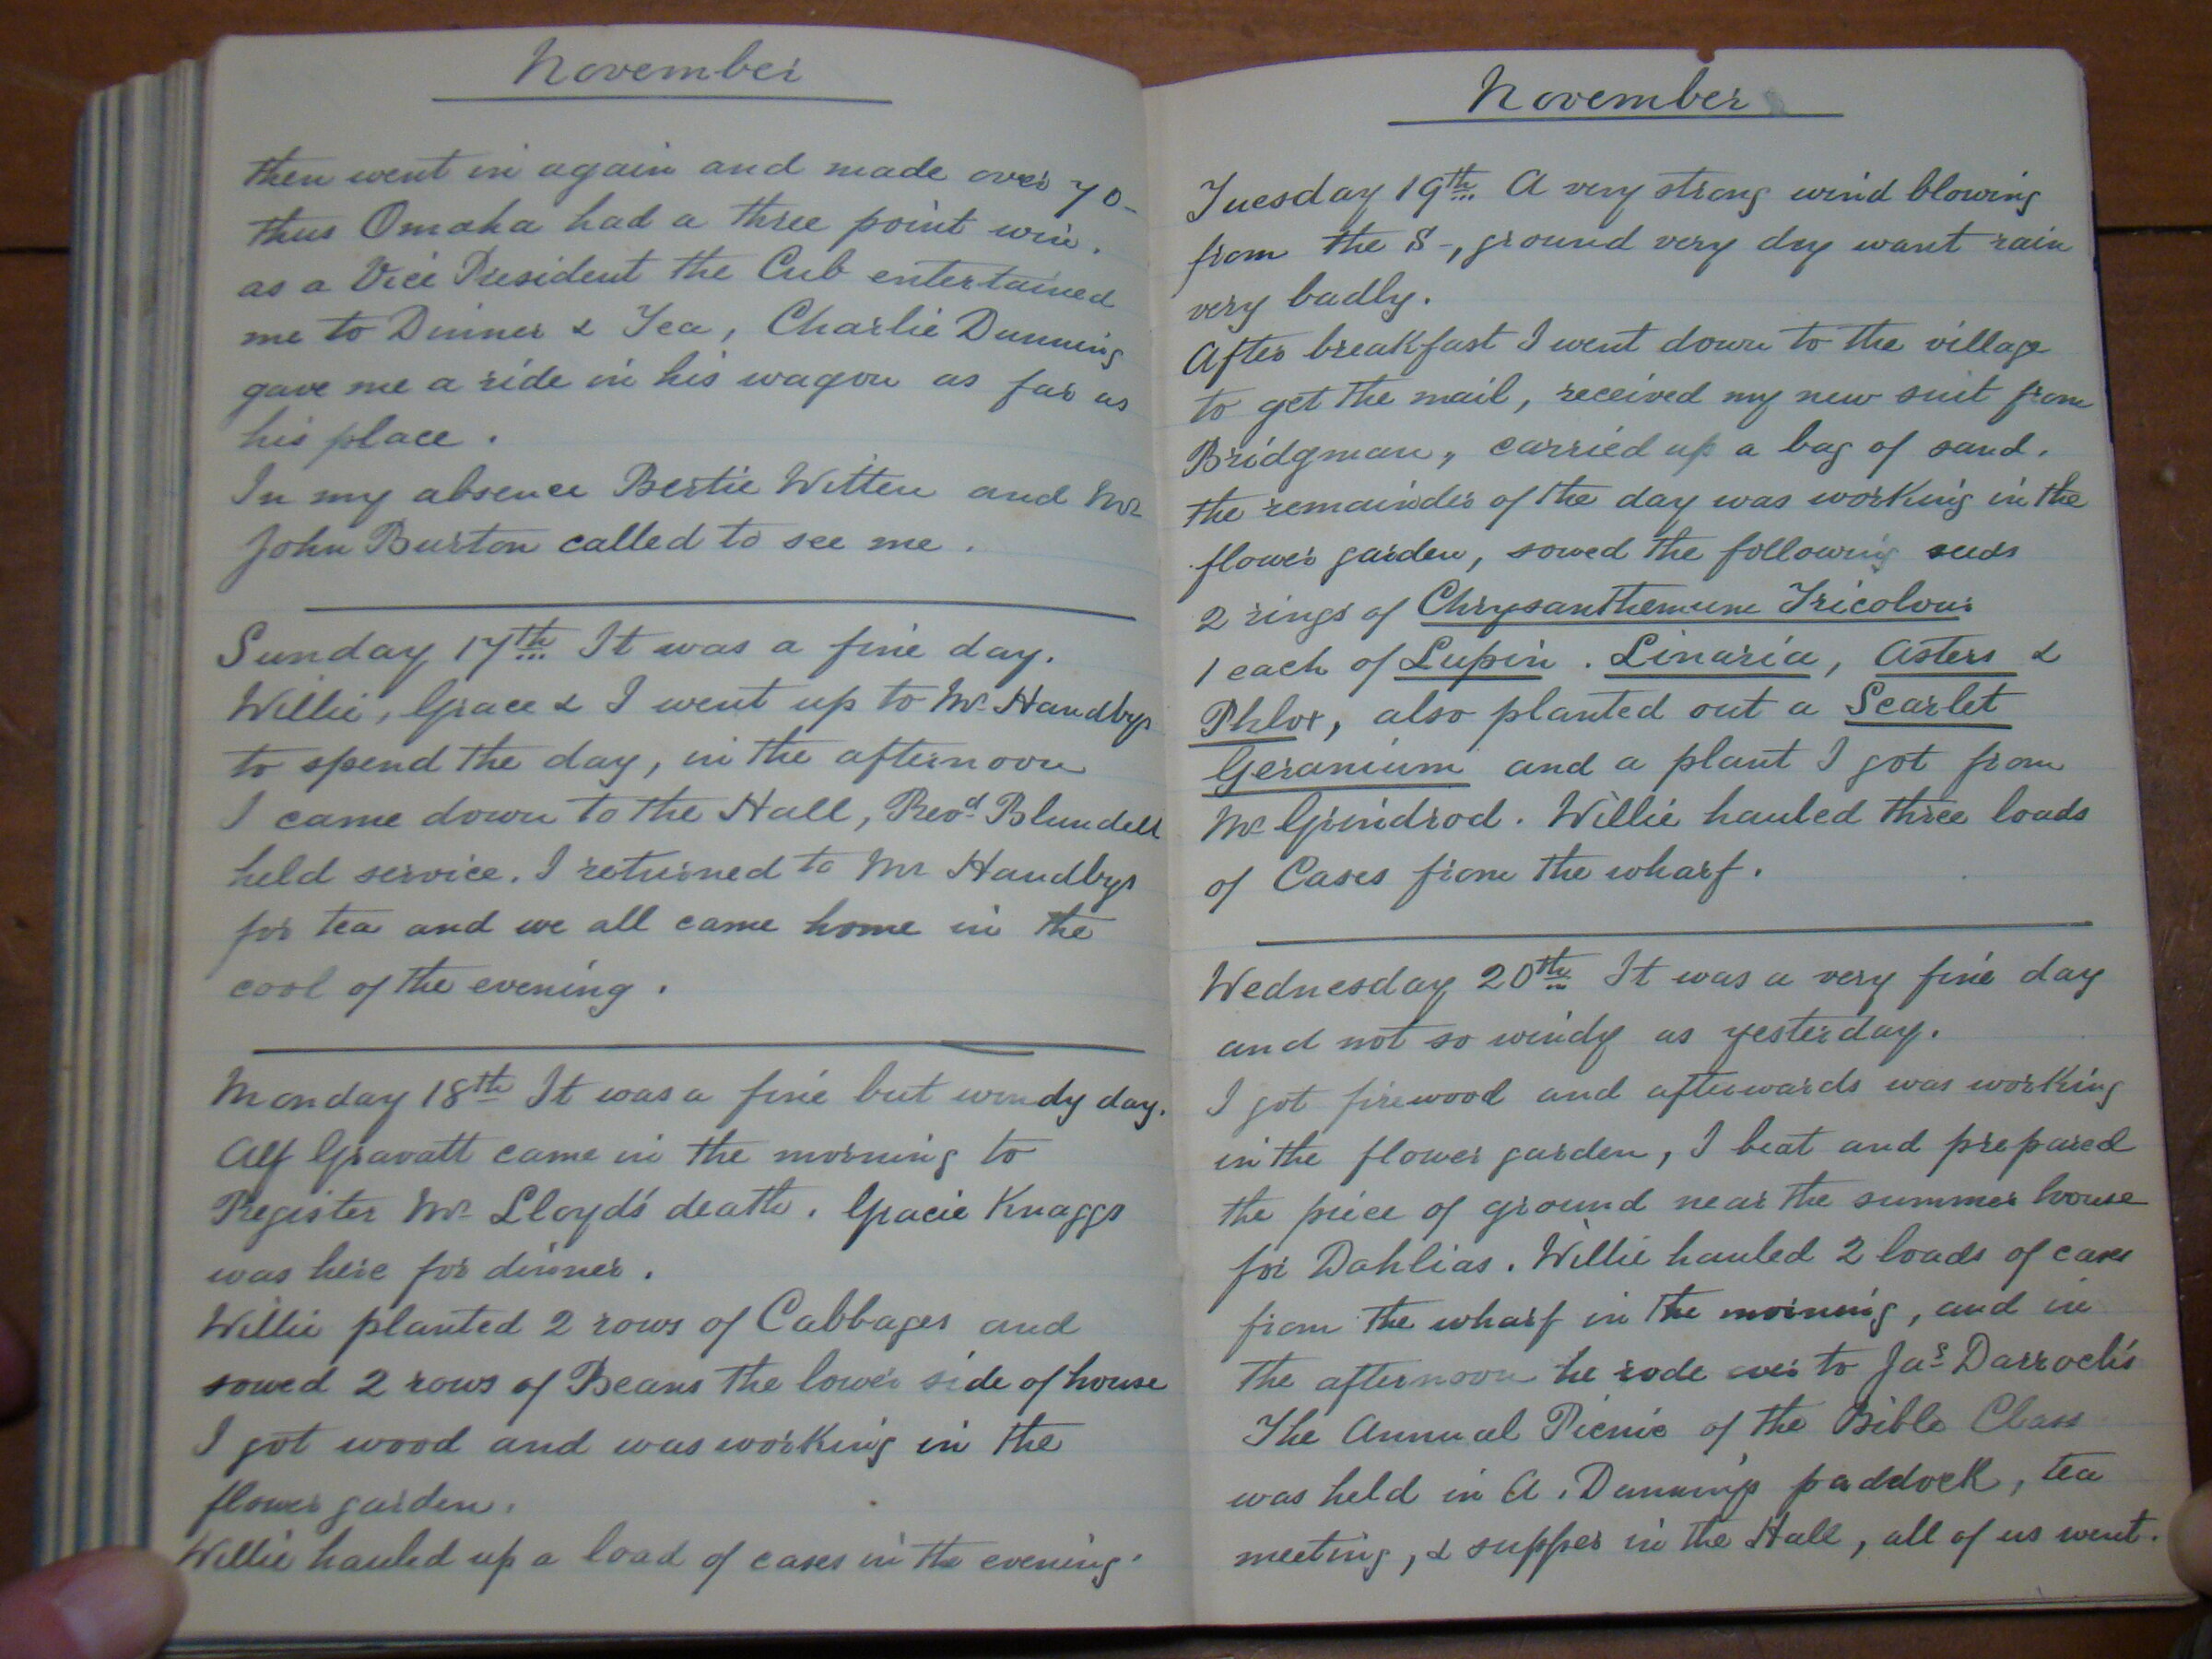 November
then went in again and made over 70 -
thus Omaha had a three point win.
as a Vice President the Cub entertained
me to Dinner & Tea, Charlie Dunning
gave me a ride in his wagon as far as
his place.
In my absence Bertie Witten and Mr
John Burton called to see me.
Sunday 17th It was a fine day.
Willie, Grace & I went up to Mr Handbys
to spend the day, in the afternoon
I came down to the Hall, Revd Blundell
held service. I returned to Mr Handbys
for tea and we all came home in the
cool of the evening.
Monday 18th It was a fine but windy day.
Alf Gravatt came in the morning to
Register Mr Lloyd's death. Gracie Knaggs
was here for dinner.
Willie planted 2 rows of Cabbages and
sowed 2 rows of Beans the lower side of house
I got wood and was working in the
flower garden.
Willie hauled up a load of cases in the evening.
November
Tuesday 19th A very strong wind blowing
from the S-, ground very dry want rain
very badly.
After breakfast I went down to the village
to get the mail, received my new suit from
Bridgman, carried up a bag of sand.
the remainder of the day was working in the
flower garden, sowed the following seeds
2 rings of Chrysanthemum Tricolour
1 each of Lupin. Linaria, Asters &
Phlox, also planted out a Scarlet
Geranium and a plant I got from
Mr Grindrod. Willie hauled three loads
of Cases from the wharf.
Wednesday 20th It was a very fine day
and not so windy as yesterday.
I got firewood and afterwards was working
in the flower garden, I beat and prepared
the piece of ground near the summer house
for Dahlias. Willie hauled 2 loads of cases
from the wharf in the morning, and in
the afternoon he rode over to Jas Darroch's
The Annual Picnic of the Bible Class
was held in A. Dunning's paddock, tea
meeting, & supper in the Hall, all of us went.